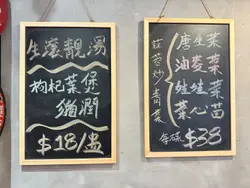 生滾靚湯
枸杞菜煲
豬潤
$18/盅
蒜蓉炒青菜
唐生菜
油麥菜
娃娃菜
菜心苗
每碟$38